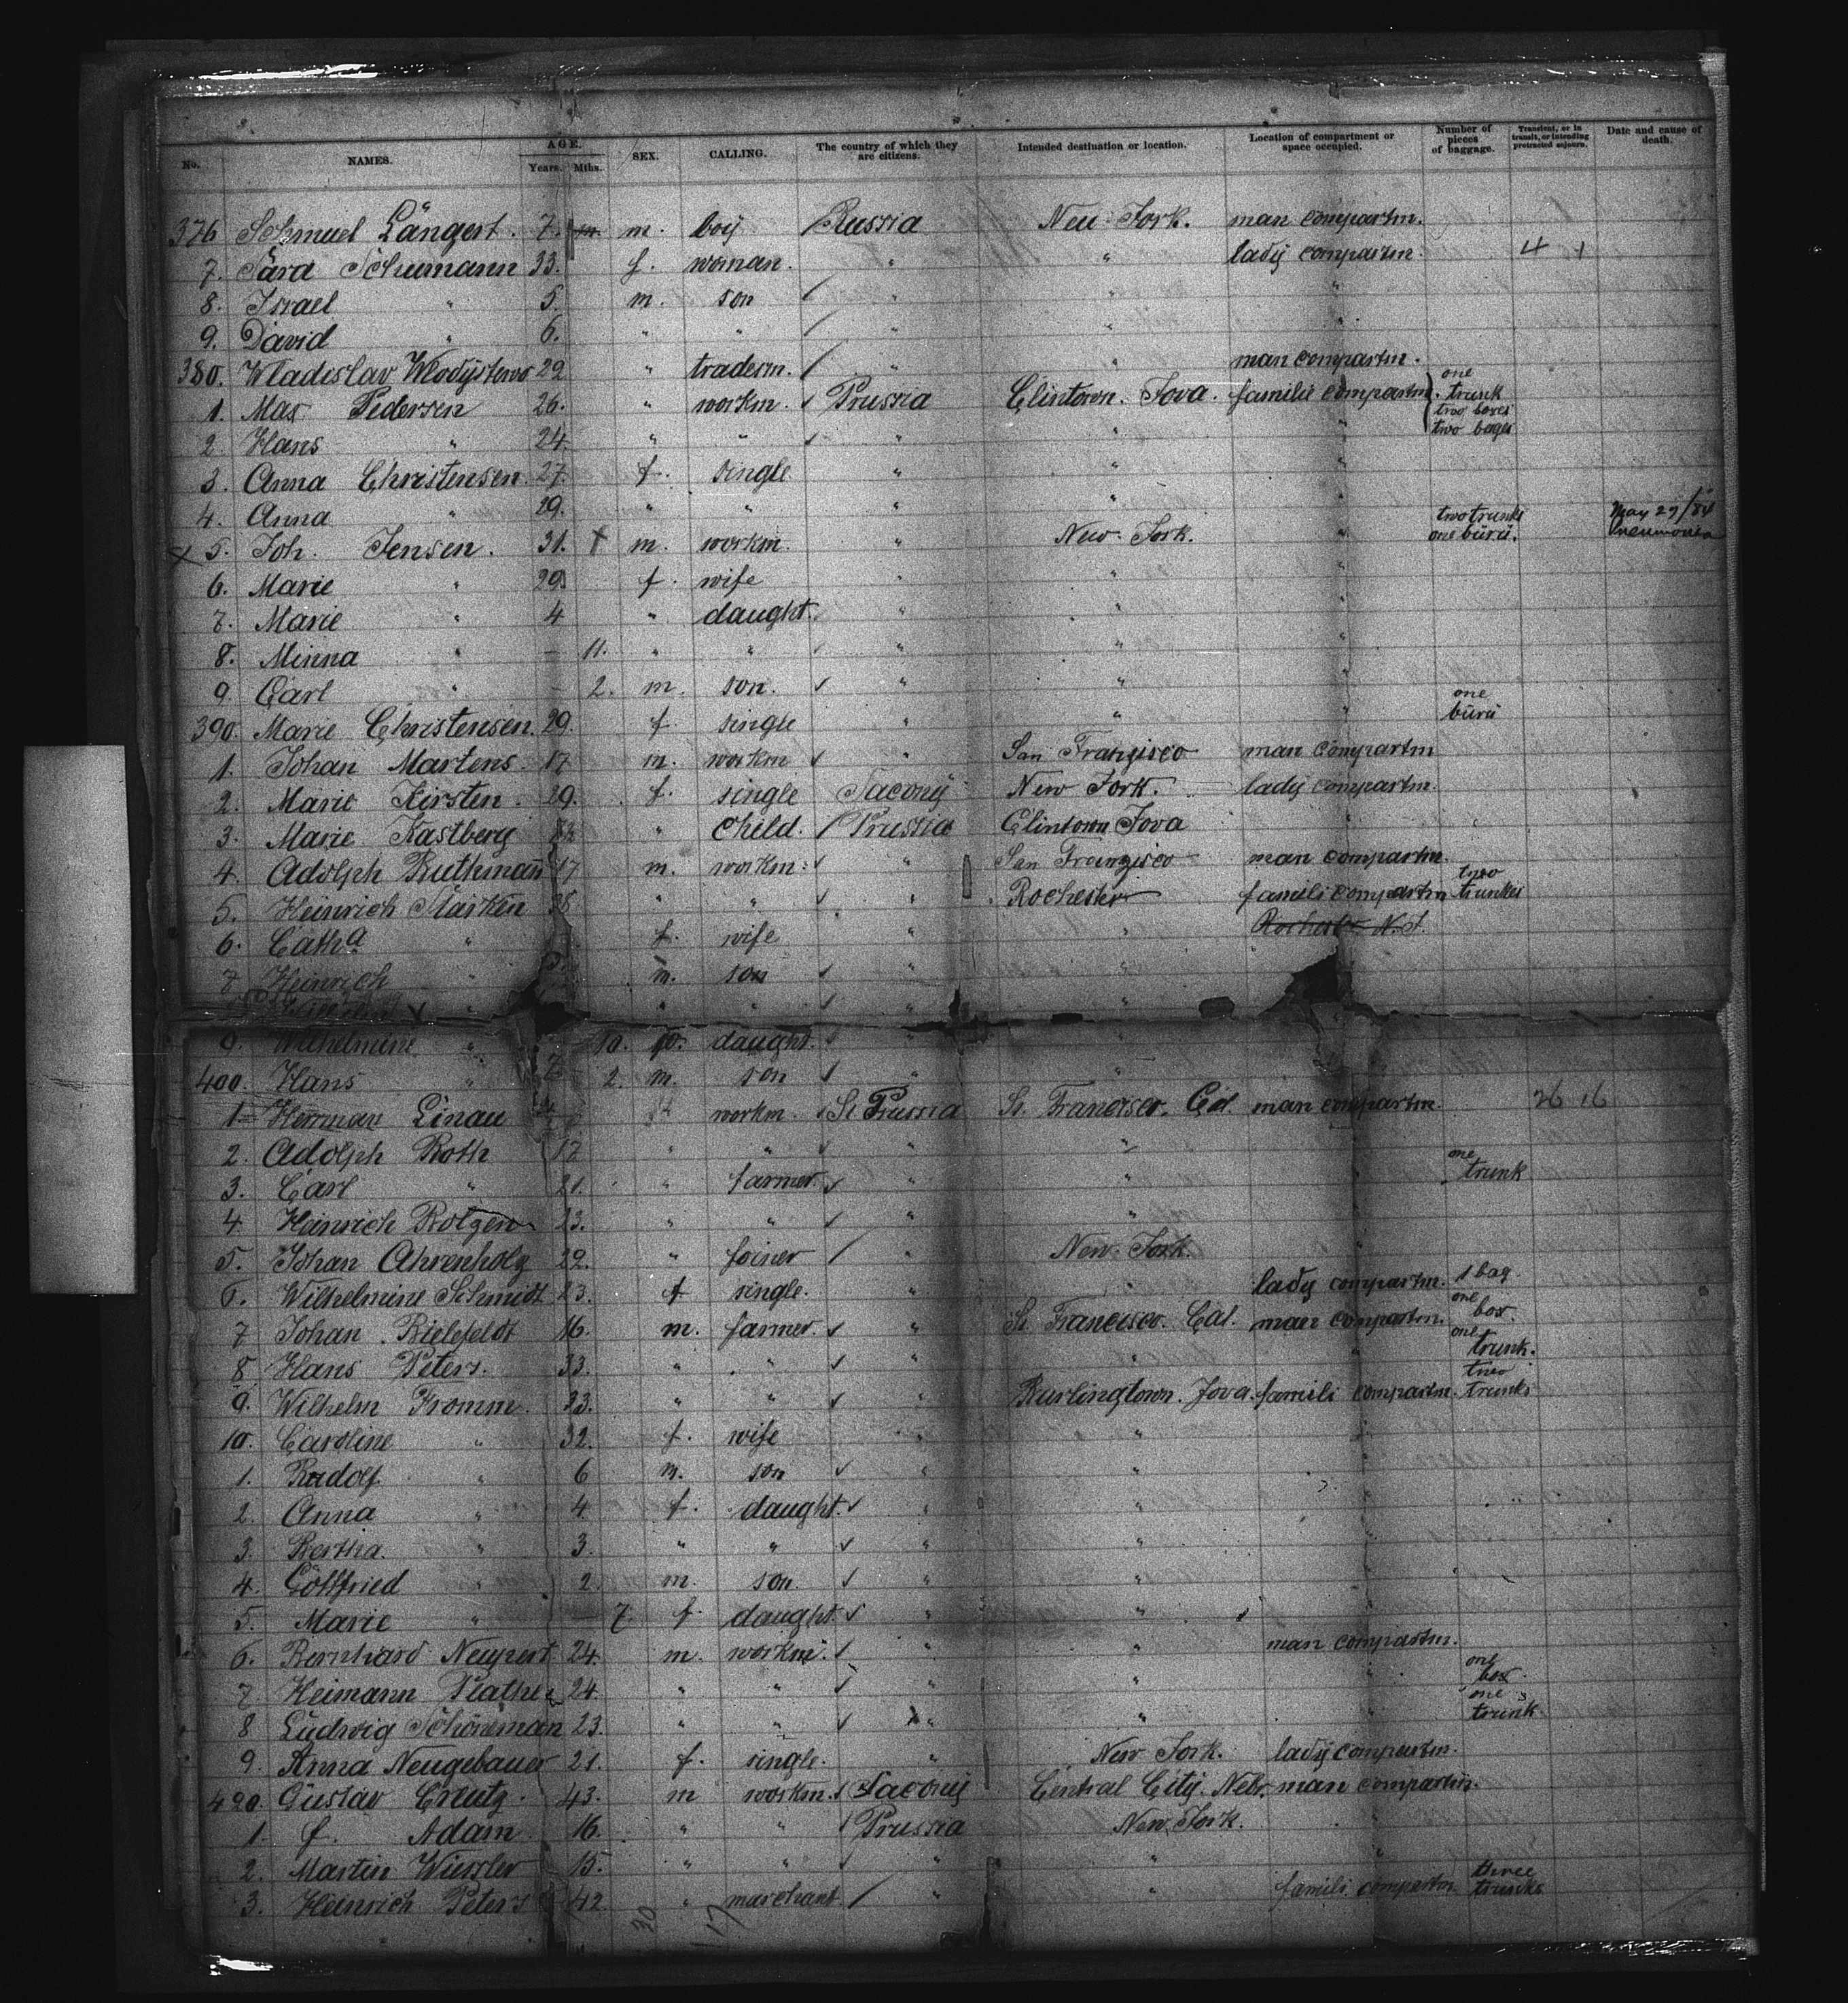 No. NAMES. AGE. Years. Mths. SEX. CALLING. The country of which they are citizens. Intended destination or location. Location of compartment or space occupied. Number of pieces of baggage. Transient, or in transit, or intending protracted sojourn. Date and cause of death.
376 Schmuel Längert. 7. m. boy Russia New-York. man compartm.
7. Sara Schumann 33. f. woman. " " lady compartm. 4 1
8. Israel " 5. m. son " " "
9. David " 6. " " " " "
380. Wladislav 29 " tradesm. " " man compartm.
1. Max Pedersen 26. " workm. Prussia Clintown. Jova. familie compartm. one trunk two boxes two bages
2. Hans " 24. " " " " "
3. Anna Christensen. 27. f. single " " "
4. Anna " 29. " " " " "
5. Joh. Jensen. 31. m. workm. " New-York. " two trunks one büru. May 27/84 Pneumonia
6. Marie " 29. f. wife " " "
7. Marie " 4 " daught. " " "
8. Minna " – 11. " " " " "
9. Carl " – 2. m. son. " " "
390. Marie Christensen. 29. f. single " " " one büru
1. Johan Martens. 17 m. workm " San Franzisco man compartm
2. Marie Kirsten. 29. f. single Sacony New York. lady compartm.
3. Marie Kastberg " child. Prussia Clintown Jova "
4. Adolph Ruthman 17 m. workm. " San Franzisco man compartm.
5. Heinrich 38 " " " Rochester famili compartm two trunkes
6. Catha " f. wife " " Rochester N.Y.
7 Heinrich " m. son " "
" " " " "
9. Wilhelmine " – 10. f. daught. " "
400. Hans " 2. m. son " "
1 Herrman Linau workm. Prussia S. Francisco. Cal. man compartm. 26 16
2. Adolph Roth 17 " " " "
3. Carl " 21. " farmer. " " one trunk
4. Heinrich Rotgen 23. " " " "
5. Johan Ahrenholz 22. " joiner " New-York. "
6. Wilhelmine Schmidt 23. f single. " " lady compartm. 1 bag
7 Johan Bielefeldt 16. m. farmer. " S. Francisco. Cal. man compartm. one box.
8 Hans Peters. 33. " " " " " one trunk.
9. Wilhelm Fromm. 33. " " " Burlingtown. Jova. famili compartm. two trunks
10. Caroline " 32. f. wife " " "
1. Rudolf. " 6 m. son " "
2. Anna " 4. f. daught. " "
3. Bertha. " 3. " " " "
4. Gottfried " 2. m. son. " "
5. Marie " – 7. f. daught. " "
6. Bernhard Neupert 24. m. workm. " " man compartm.
7. Heimann Plathe 24. " " " " " one box
8 Ludwig Schöneman 23. " " " " " one trunk
9. Anna Neugebauer 21. f. single. " New York. lady compartm.
420. Gustav Creutz. 43. m workm. Sacony Central City. Nebr. man compartm.
1. f. Adam 16. " " Prussia New York. "
2. Martin 15. " " " " "
3. Heinrich Peters 42 " marchant. " " famili compartm three trunks
30 17